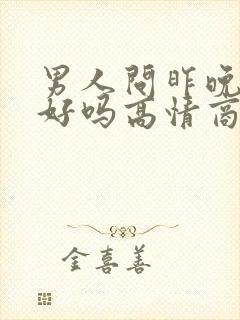 男人问昨晚
好吗高情商
金喜善